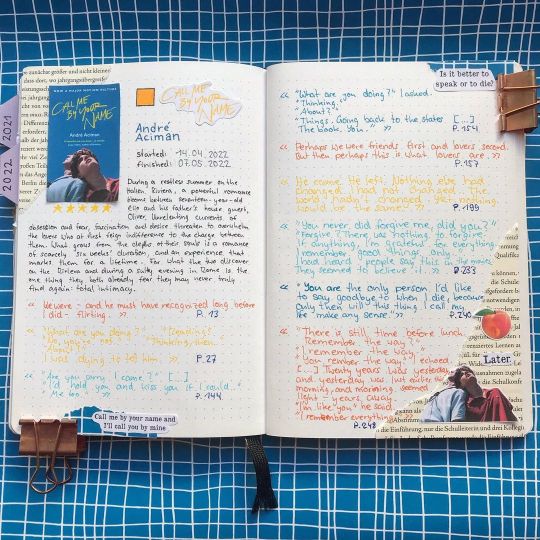 2022 2021
NOW A MAJOR MOTION PICTURE
CALL ME
BY YOUR
NAME
André Aciman
CALL ME
BY YOUR
NAME
André
Aciman
started: 14.04.2022
finished: 07.05.2022
During a restless summer on the
Italian Riviera, a powerful romance
blooms between seventeen-year-old
Elio and his father's house guest,
Oliver. Unrelenting currents of
obsession and fear, fascination and desire threaten to overwhelm
the lovers who at first feign indifference to the charge between
them. What grows from the depths of their souls is a romance
of scarcely six weeks' duration, and an experience that
marks them for a lifetime. For what the two discover
on the Riviera and during a sultry evening in Rome is the
one thing they both already fear they may never truly
find again: total intimacy.
<< We were - and he must have recognized long before
I did - flirting. >> P. 13
<< "What are you doing?" "Reading."
"No, you're not." "Thinking, then."
"About?"
I was dying to tell him. >> P. 27
<< "Are you sorry I came?" [...]
"I'd hold you and kiss you if I could."
"Me too." >> P. 144
Call me by your name and
I'll call you by mine
Is it better to
speak or to die?
<< "What are you doing?" I asked.
"Thinking."
"About?"
"Things. Going back to the States. [...]
The book. You." >> P. 154
<< Perhaps we were friends first and lovers second.
But then perhaps this is what lovers are. >>
P. 157
<< He came. He left. Nothing else had
changed. I had not changed. The
world hadn't changed. Yet nothing
would be the same. >> P. 199
<< "You never did forgive me, did you?"
"Forgive? There was nothing to forgive.
If anything, I'm grateful for everything.
I remember good things only."
I had heard people say this in the movies.
They seemed to believe it. >> P. 233
<< "You are the only person I'd like
to say goodbye to when I die, because
only then will this thing I call my
life make any sense." >> P. 240
<< "There is still time before lunch.
Remember the way?"
"I remember the way."
"You remember the way," he echoed.
[...] Twenty years was yesterday,
and yesterday was just earlier this
morning, and morning seemed
light-years away.
"I'm like you," he said.
"I remember everything."
P. 248
Later.